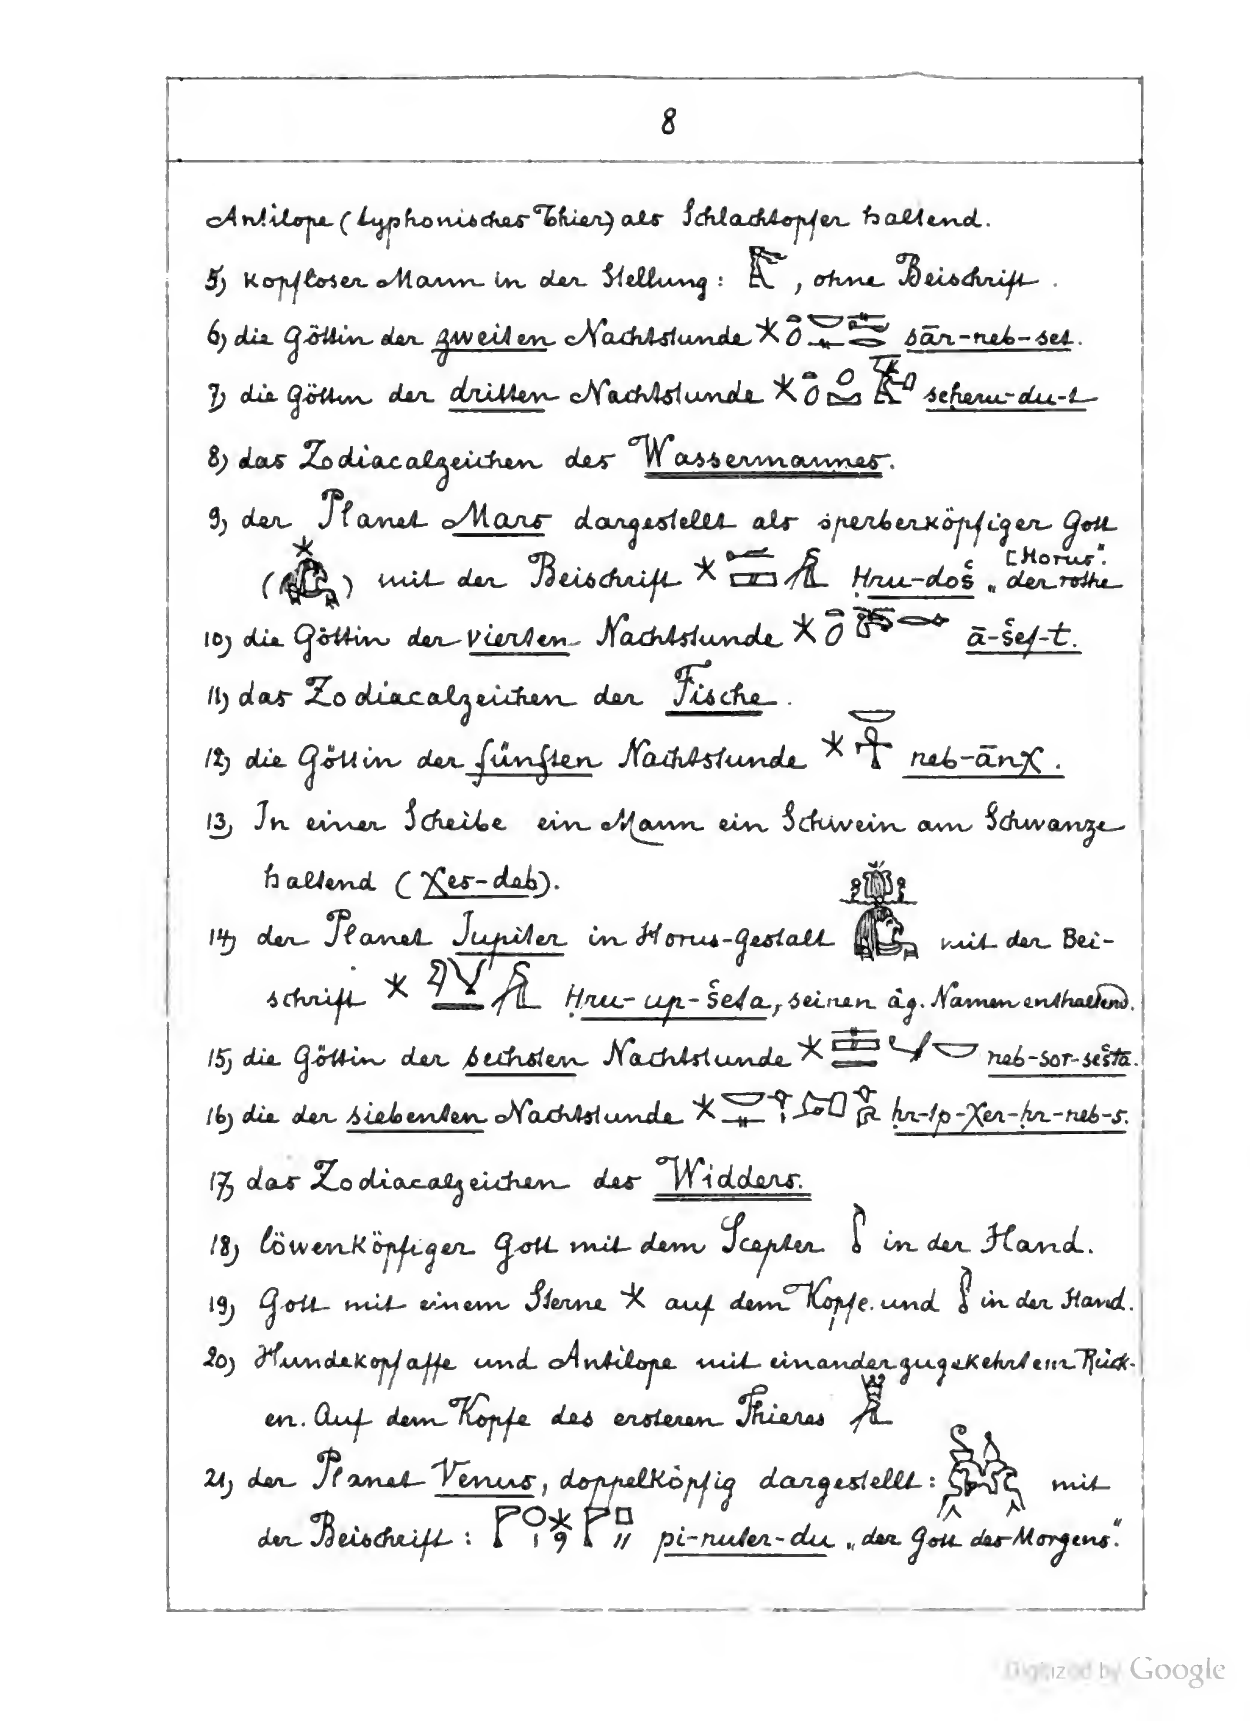 8
Antilope (typhonisches Thier) als Schlachtopfer haltend.
5) kopfloser Mann in der Stellung: , ohne Beischrift.
6) die Göttin der zweiten Nachtstunde sār-neb-set.
7) die Göttin der dritten Nachtstunde seheru-du-t
8) das Zodiacalzeichen des Wassermannes.
9) der Planet Mars dargestellt als sperberköpfiger Gott
[Horus".
( ) mit der Beischrift Ḥru-doš „der rothe
10) die Göttin der vierten Nachtstunde ā-šef-t.
11) das Zodiacalzeichen der Fische.
12) die Göttin der fünften Nachtstunde neb-ānχ.
13) In einer Scheibe ein Mann ein Schwein am Schwanze
haltend (χes-deb).
14) der Planet Jupiter in Horus-Gestalt mit der Bei-
schrift Ḥru-up-šeta, seinen äg. Namen enthaltend.
15) die Göttin der sechsten Nachtstunde neb-sor-sešta.
16) die der siebenten Nachtstunde ḥr-tp-χer-ḥr-neb-s.
17) das Zodiacalzeichen des Widders.
18) löwenköpfiger Gott mit dem Scepter in der Hand.
19) Gott mit einem Sterne auf dem Kopfe und in der Hand.
20) Hundekopfaffe und Antilope mit einander zugekehrtem Rück-
en. Auf dem Kopfe des ersteren Thieres
21) der Planet Venus, doppelköpfig dargestellt: mit
der Beischrift: pi-nuter-du „der Gott des Morgens".
Digitized by Google